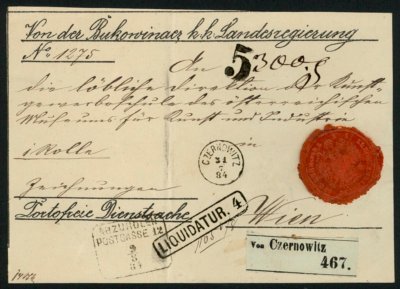 Von der Bukowinaer k.k. Landesregierung
No. 1275
An
5
300g
die löbliche Direktion der Kunst-
gewerbeschule des österreichischen
Museums für Kunst und Industrie
in
1 Rolle
CZERNOWITZ
31
84
Zeichnungen
Portofreie Dienstsache
Wien
ABZUHOLEN
POSTGASSE 12
84
LIQUIDATUR. 4
Von Czernowitz
467.